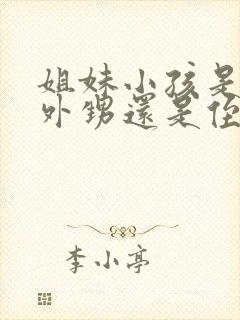 姐妹小孩是
外甥還是侄
李小亭